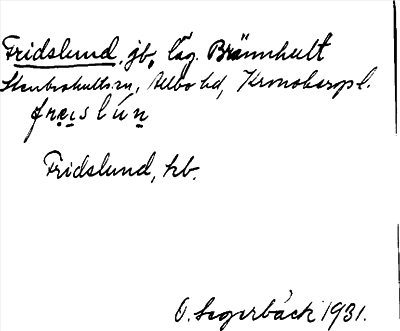 Fridslund, jb, läg. Brännhult
Stenbrohults sn, Allbo hd, Kronobergs l.
frɛ̤ɪslún̤
Fridslund, kb.
O. Segerbäck 1931.